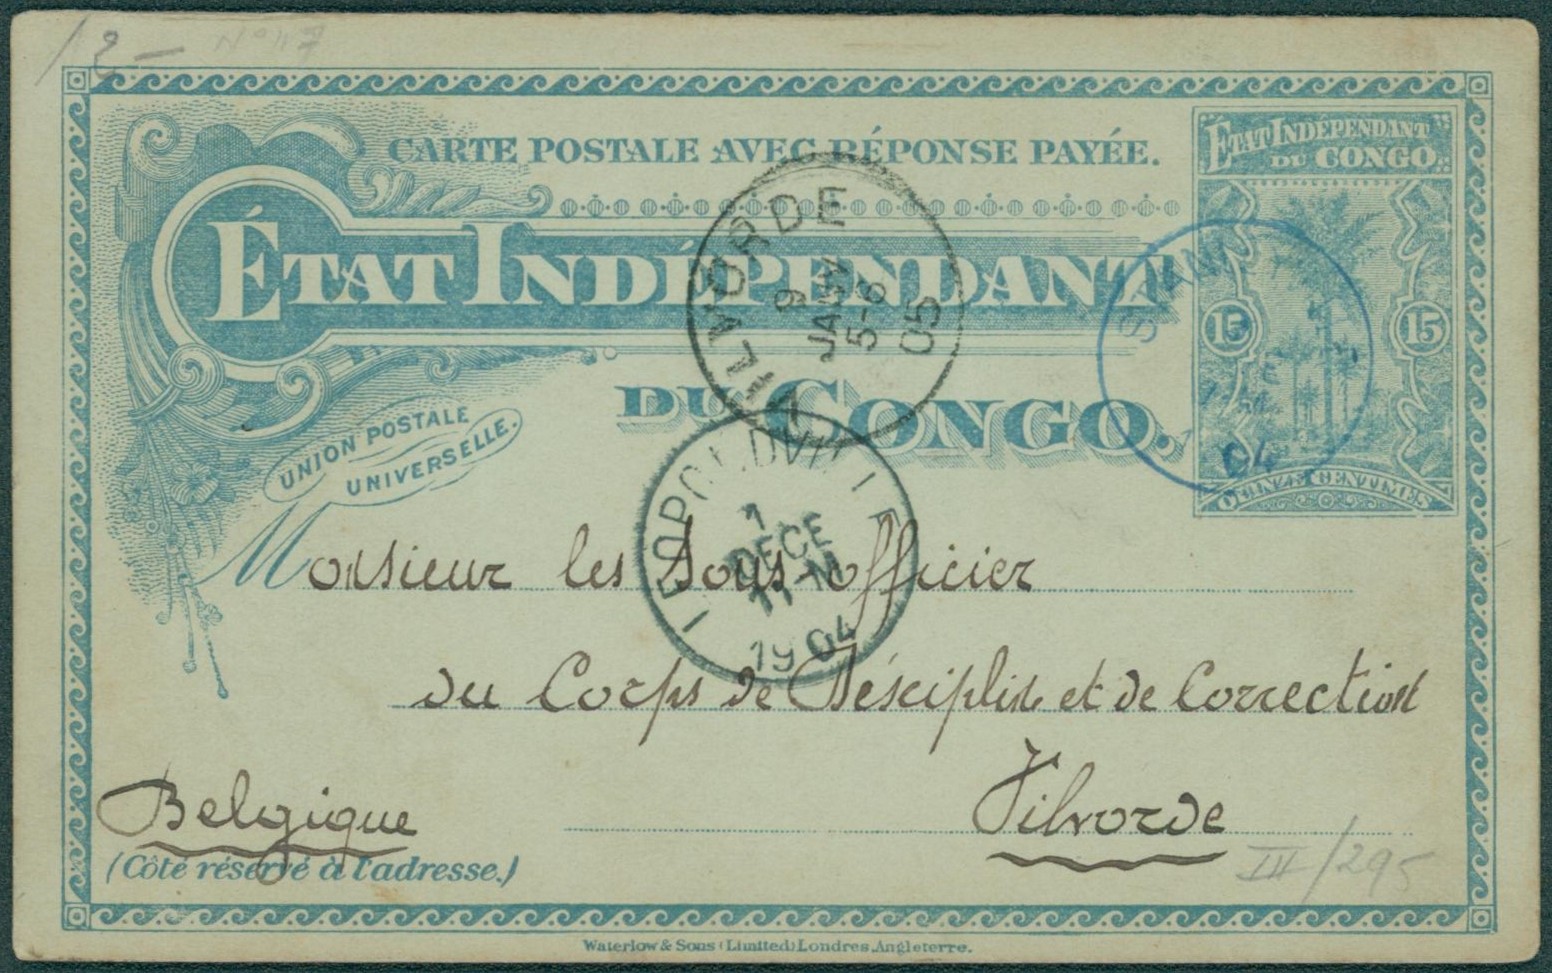 12- N°117
CARTE POSTALE AVEC RÉPONSE PAYÉE.
ÉTAT INDÉPENDANT
DU CONGO.
ÉTAT INDÉPENDANT
DU CONGO.
15 15
QUINZE CENTIMES
UNION POSTALE
UNIVERSELLE.
VILVORDE
9
JANV
5-6
05
STANLEY
04
LEOPOLDVILLE
1
DÉCE
11-M
1904
Monsieur les Sous-officier
du Corps de Déscipline et de Correction
Vilvorde
Belgique
(Côté réservé à l'adresse.)
III/295
Waterlow & Sons (Limited) Londres, Angleterre.